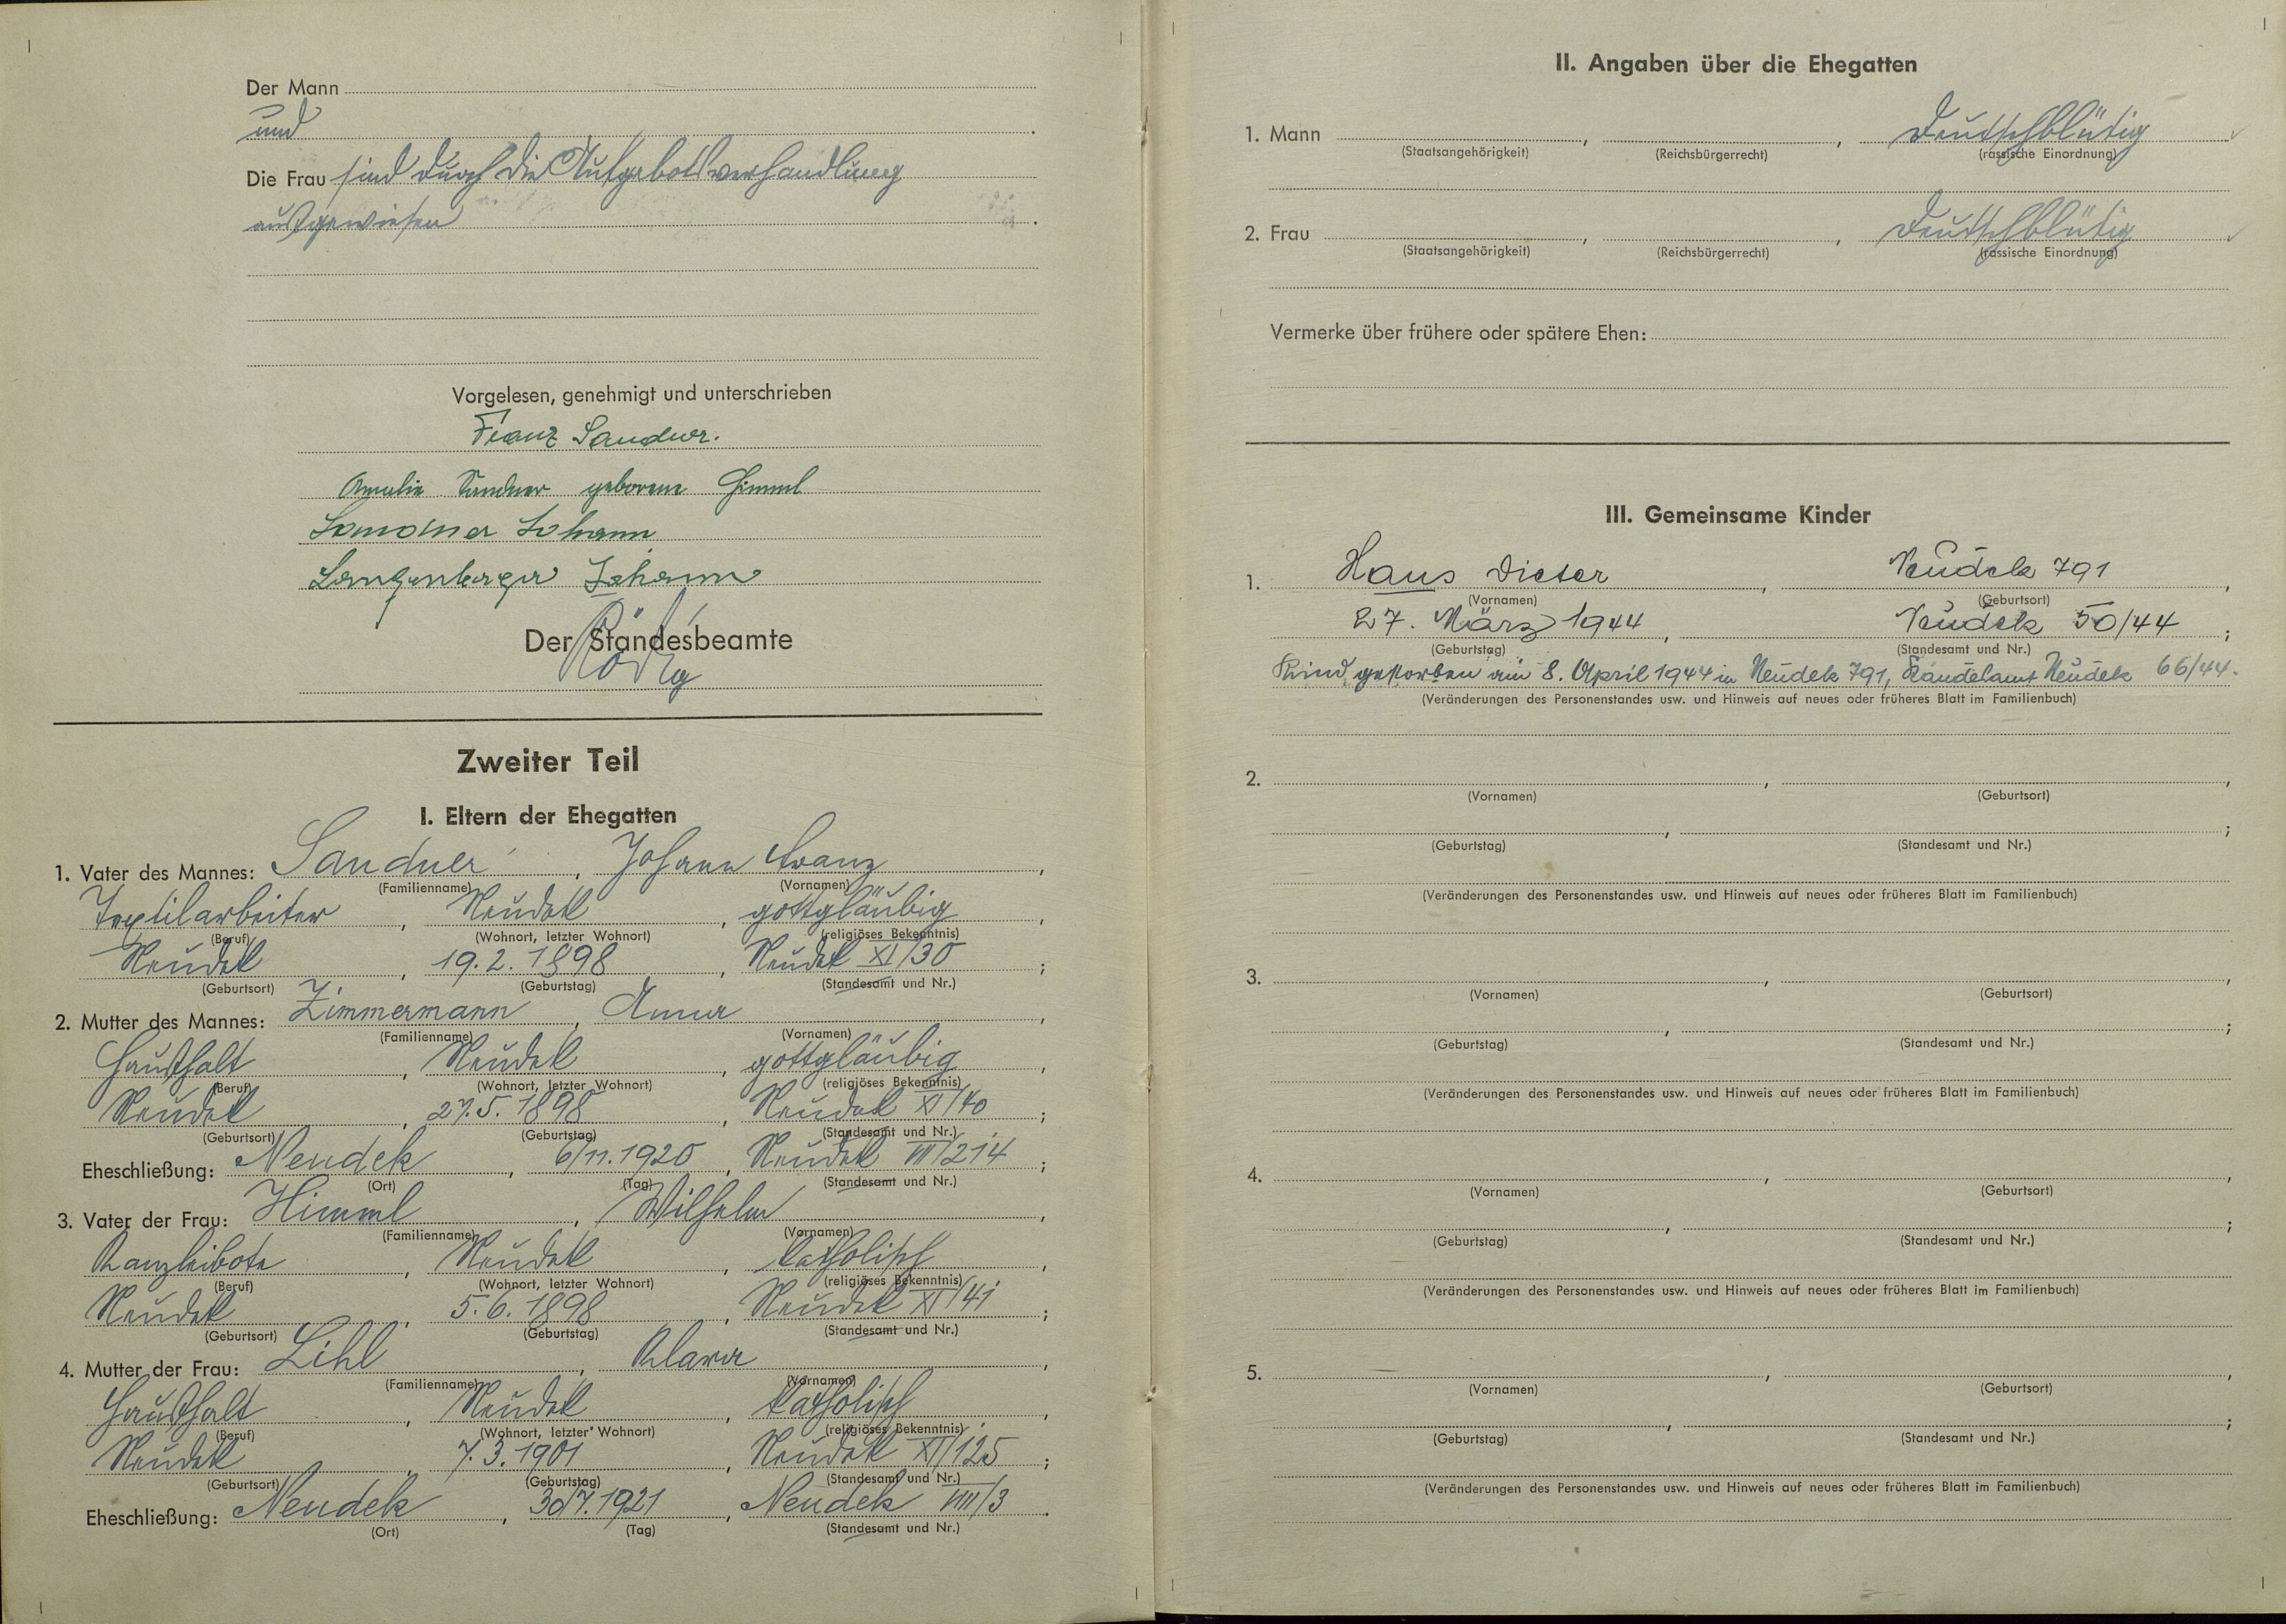 Der Mann
und
Die Frau sind durch die Aufgebotsverhandlung
ausgewiesen
Vorgelesen, genehmigt und unterschrieben
Franz Sandner.
Amalie Sandner geborene Himml
Sandner Johann
Langenberger Johann
Der Standesbeamte
Zweiter Teil
I. Eltern der Ehegatten
1. Vater des Mannes: Sandner, Johann Franz,
(Familienname) (Vornamen)
Textilarbeiter, Neudek, gottgläubig,
(Beruf) (Wohnort, letzter Wohnort) (religiöses Bekenntnis)
Neudek, 19.2.1898, Neudek XI/30;
(Geburtsort) (Geburtstag) (Standesamt und Nr.)
2. Mutter des Mannes: Zimmermann, Anna,
(Familienname) (Vornamen)
Haushalt, Neudek, gottgläubig,
(Beruf) (Wohnort, letzter Wohnort) (religiöses Bekenntnis)
Neudek, 27.5.1898, Neudek XI/40;
(Geburtsort) (Geburtstag) (Standesamt und Nr.)
Eheschließung: Neudek, 6/11.1920, Neudek VII/214;
(Ort) (Tag) (Standesamt und Nr.)
3. Vater der Frau: Himml, Wilhelm,
(Familienname) (Vornamen)
Kanzleibote, Neudek, katholisch,
(Beruf) (Wohnort, letzter Wohnort) (religiöses Bekenntnis)
Neudek, 5.6.1898, Neudek XI/41;
(Geburtsort) (Geburtstag) (Standesamt und Nr.)
4. Mutter der Frau: Lihl, Klara,
(Familienname) (Vornamen)
Haushalt, Neudek, katholisch,
(Beruf) (Wohnort, letzter Wohnort) (religiöses Bekenntnis)
Neudek, 7.3.1901, Neudek XI/125;
(Geburtsort) (Geburtstag) (Standesamt und Nr.)
Eheschließung: Neudek, 30/7.1921, Neudek VIII/3.
(Ort) (Tag) (Standesamt und Nr.)
II. Angaben über die Ehegatten
1. Mann , , Deutschblütig
(Staatsangehörigkeit) (Reichsbürgerrecht) (rassische Einordnung)
2. Frau , , Deutschblütig
(Staatsangehörigkeit) (Reichsbürgerrecht) (rassische Einordnung)
Vermerke über frühere oder spätere Ehen:
III. Gemeinsame Kinder
1. Hans Dieter, Neudek 791,
(Vornamen) (Geburtsort)
27. März 1944, Neudek 50/44;
(Geburtstag) (Standesamt und Nr.)
Kind gestorben am 8. April 1944 in Neudek 791, Standesamt Neudek 66/44.
(Veränderungen des Personenstandes usw. und Hinweis auf neues oder früheres Blatt im Familienbuch)
2. , ,
(Vornamen) (Geburtsort)
, ;
(Geburtstag) (Standesamt und Nr.)
(Veränderungen des Personenstandes usw. und Hinweis auf neues oder früheres Blatt im Familienbuch)
3. , ,
(Vornamen) (Geburtsort)
, ;
(Geburtstag) (Standesamt und Nr.)
(Veränderungen des Personenstandes usw. und Hinweis auf neues oder früheres Blatt im Familienbuch)
4. , ,
(Vornamen) (Geburtsort)
, ;
(Geburtstag) (Standesamt und Nr.)
(Veränderungen des Personenstandes usw. und Hinweis auf neues oder früheres Blatt im Familienbuch)
5. , ,
(Vornamen) (Geburtsort)
, ;
(Geburtstag) (Standesamt und Nr.)
(Veränderungen des Personenstandes usw. und Hinweis auf neues oder früheres Blatt im Familienbuch)